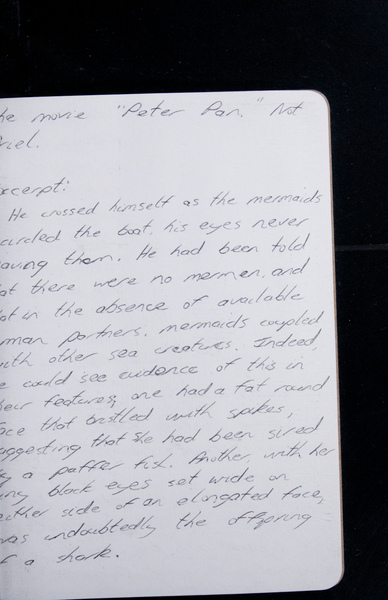 he movie "Peter Pan." Not
riel.
xcerpt:
He crossed himself as the mermaids
circled the boat, his eyes never
eaving them. He had been told
at there were no mermen, and
at in the absence of available
uman partners, mermaids coupled
with other sea creatures. Indeed,
e could see evidence of this in
heir features; one had a fat round
ace that bristled with spikes,
uggesting that she had been sired
y a puffer fish. Another, with her
iny black eyes set wide on
either side of an elongated face,
was undoubtedly the offspring
f a shark.